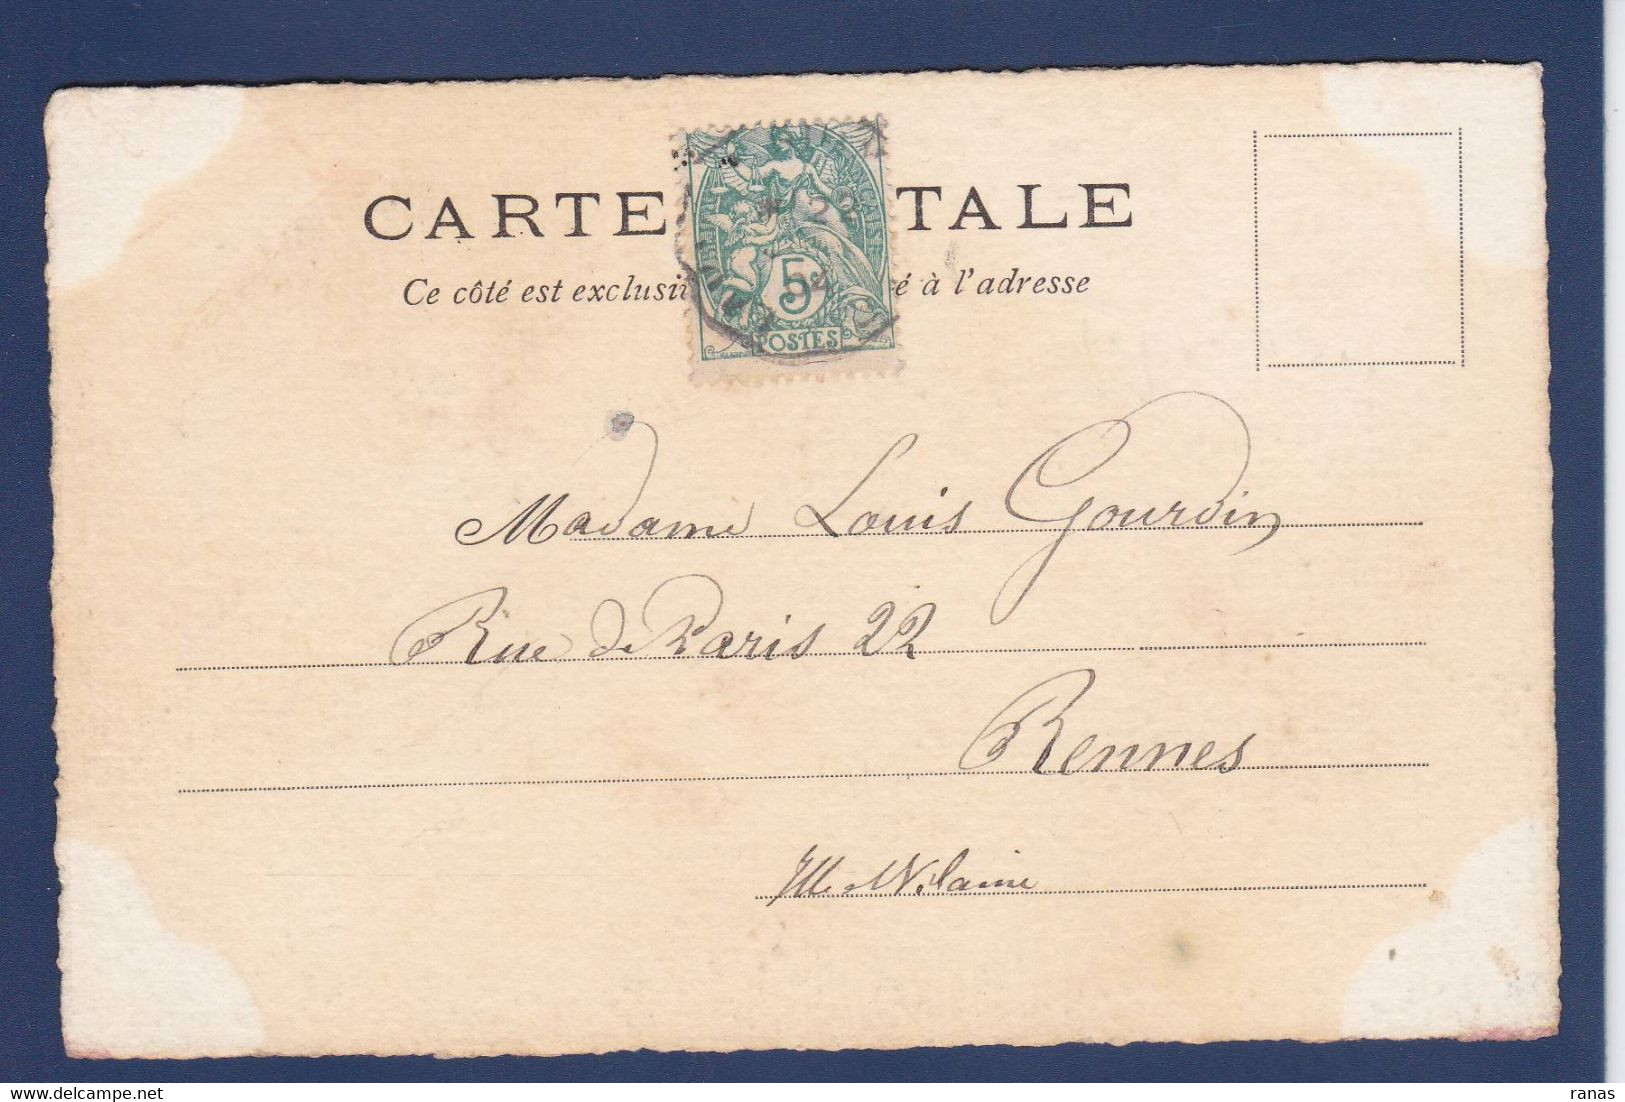 CARTE TALE
Ce côté est exclusi é à l'adresse
22
5
POSTES
Madame Louis Gourdin
Rue de Paris 22
Rennes
Ille et Vilaine
ranas